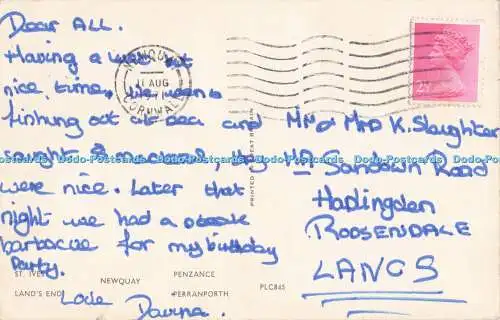 Dear ALL.
Having a
nice time. We went
fishing out at sea and
caught 8 mackerel, they
were nice. Later that
night we had a
barbacue for my birthday
party.
Love
Davina.
NEWQUAY
11 AUG
CORNWALL
2½
Mr & Mrs K. Slaughter
Sandown Road
Haslingden
ROOSENDALE
LANCS
PRINTED IN GREAT BRITAIN
ST. IVES
NEWQUAY
PENZANCE
LAND'S END
PERRANPORTH
PLC845
Dodo-Postcards Dodo-Postcards Dodo-Postcards Dodo-Postcards Dodo-Postcards